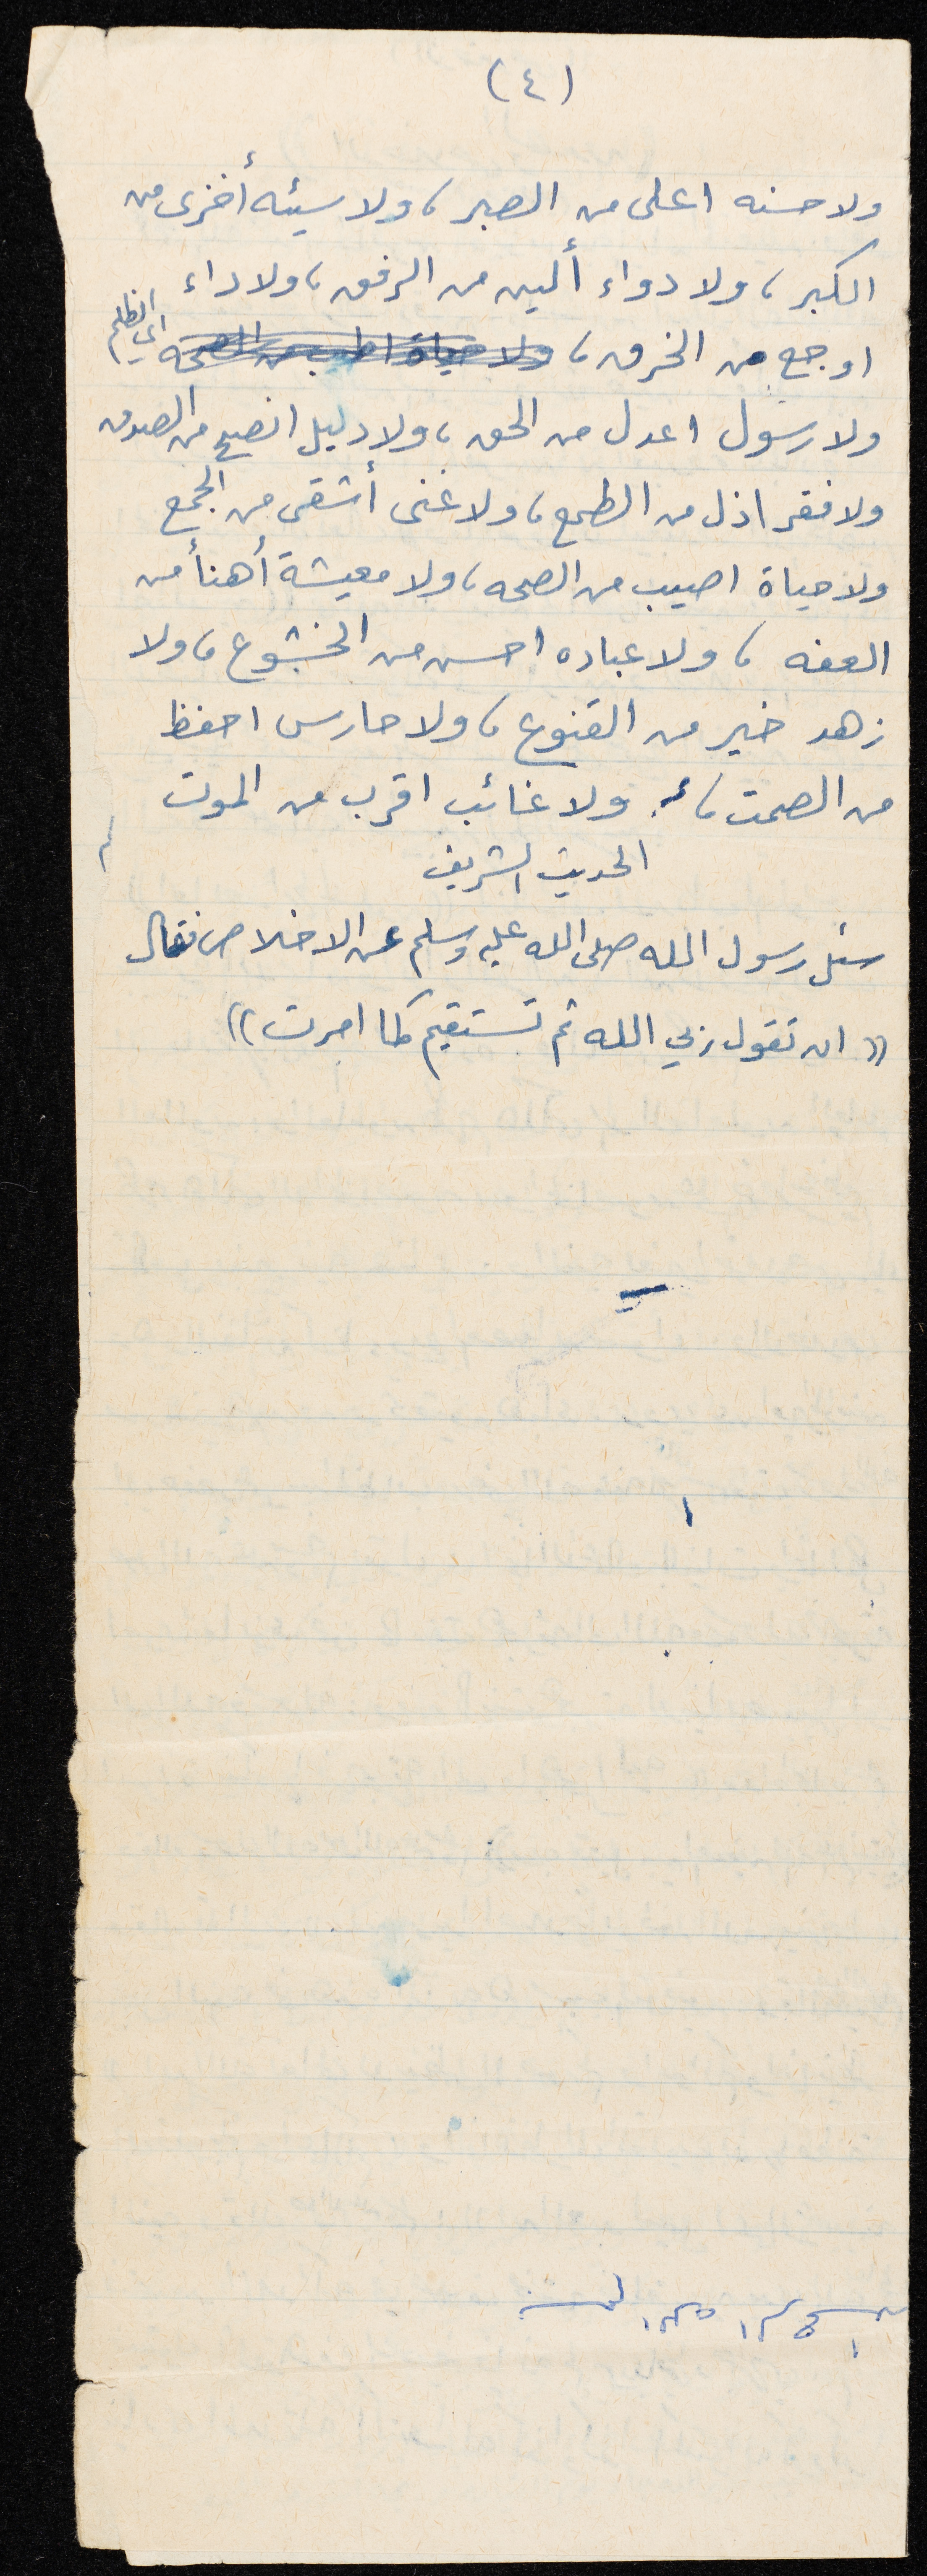 (٤)
ولا حسنه اعلى من الصبر، ولا سيئه أخزى من
الكبر، ولا دواء ألين من الرفق، ولا داء
اوجع من الخرق، ولا حياة اطيب من الصحه اي الظلم
ولا رسول اعدل من الحق، ولا دليل انصح من الصدق
ولا فقر اذل من الطمع، ولا غنى أشقى من الجمع
ولا حياة اطيب من الصحه، ولا معيشة أهنأ من
العفه، ولا عباده احسن من الخشوع، ولا
زهد خير من القنوع، ولا حارس احفظ
من الصمت، ولا غائب اقرب من الموت
الحديث الشريف
سئل رسول الله صلى الله عليه وسلم عن الاخلاص فقال
(( ان تقول ربي الله ثم تستقيم كما امرت ))